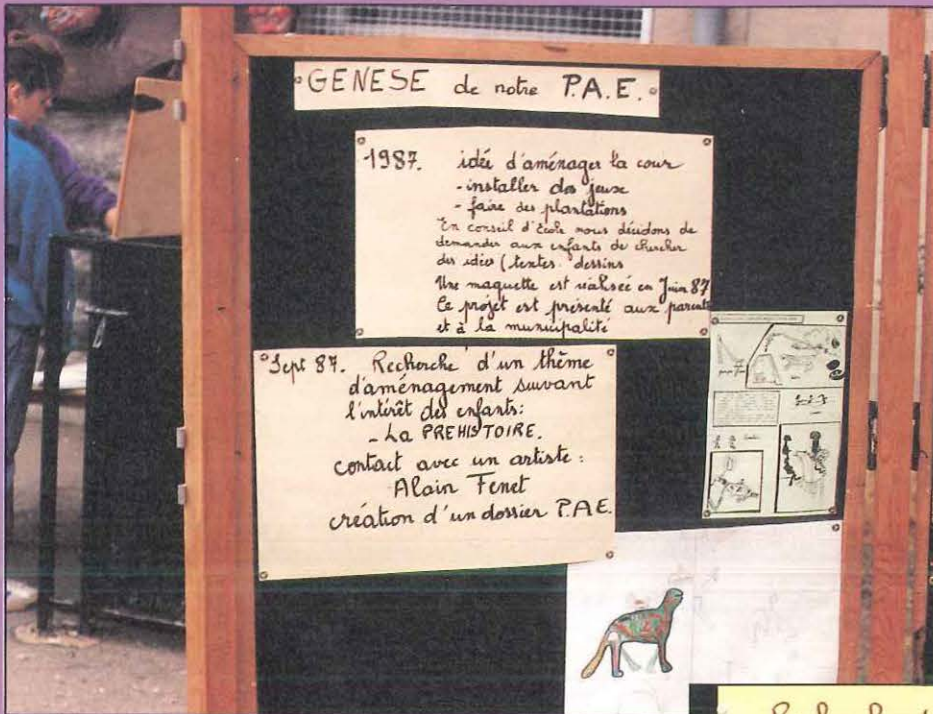 GENESE de notre P.A.E.
1987. idée d'aménager la cour
- installer des jeux
- faire des plantations
En conseil d'École nous décidons de
demander aux enfants de chercher
des idées (textes. dessins
Une maquette est réalisée en Juin 87
Ce projet est présenté aux parents
et à la municipalité
Sept 87. Recherche d'un thème
d'aménagement suivant
l'intérêt des enfants:
- La PREHISTOIRE.
contact avec un artiste:
Alain Fenet
création d'un dossier P.A.E.